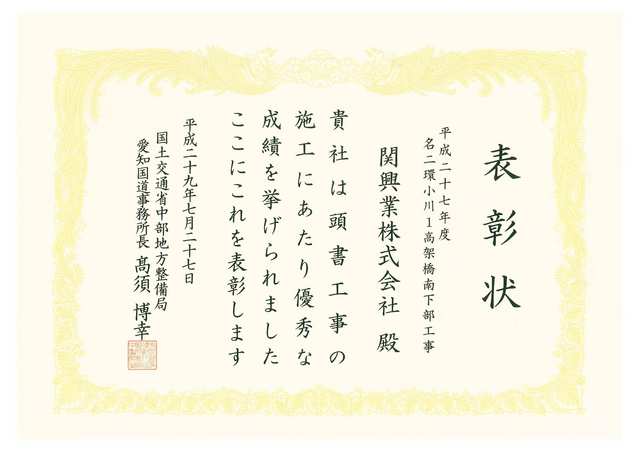 表彰状
平成二十七年度
名二環小川1高架橋南下部工事
関興業株式会社 殿
貴社は頭書工事の
施工にあたり優秀な
成績を挙げられました
ここにこれを表彰します
平成二十九年七月二十七日
国土交通省中部地方整備局
愛知国道事務所長 髙須 博幸